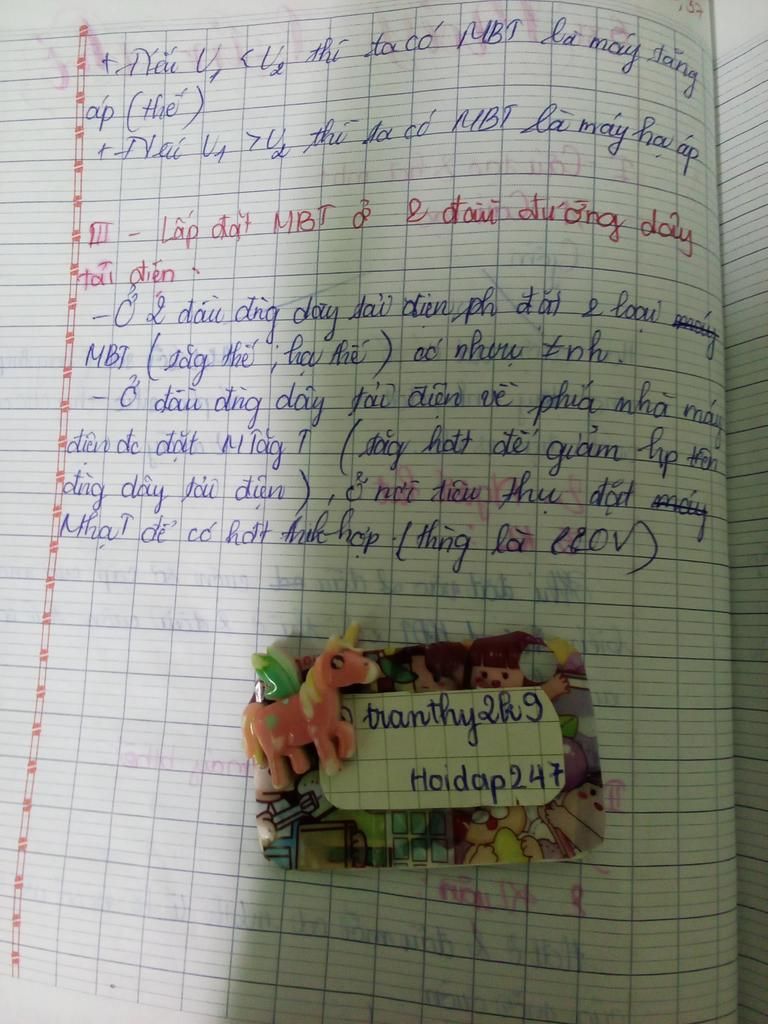 + Nếu U₁ < U₂ thì ta có MBT là máy tăng
áp (thế)
+ Nếu U₁ > U₂ thì ta có MBT là máy hạ áp
III - Lắp đặt MBT ở 2 đầu đường dây
tải điện :
- Ở 2 đầu đng dây tải điện ph đặt 2 loại máy
MBT (tăg thế ; hạ thế) có nhvụ ≠nh.
- Ở đầu đng dây tải điện về phía nhà máy
điện đc đặt MTăgT (tăg hđt để giảm hp trên
đng dây tải điện), ở nơi tiêu thụ đặt máy
MhạT để có hđt thíh hợp (thng là 220V)
tranthy2k9
Hoidap247